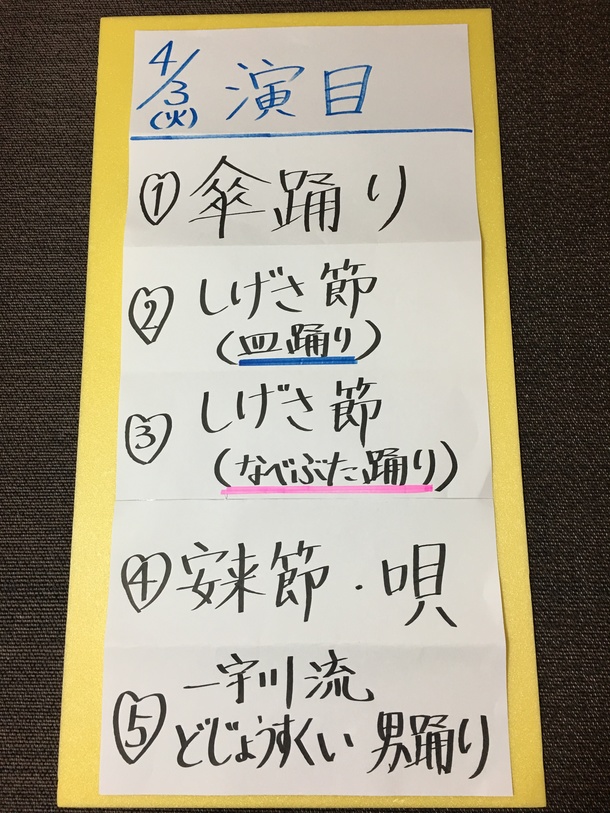 4/3(火) 演目
① 傘踊り
② しげさ節
(皿踊り)
③ しげさ節
(なべぶた踊り)
④ 安来節・唄
⑤ 一宇川流
どじょうすくい 男踊り